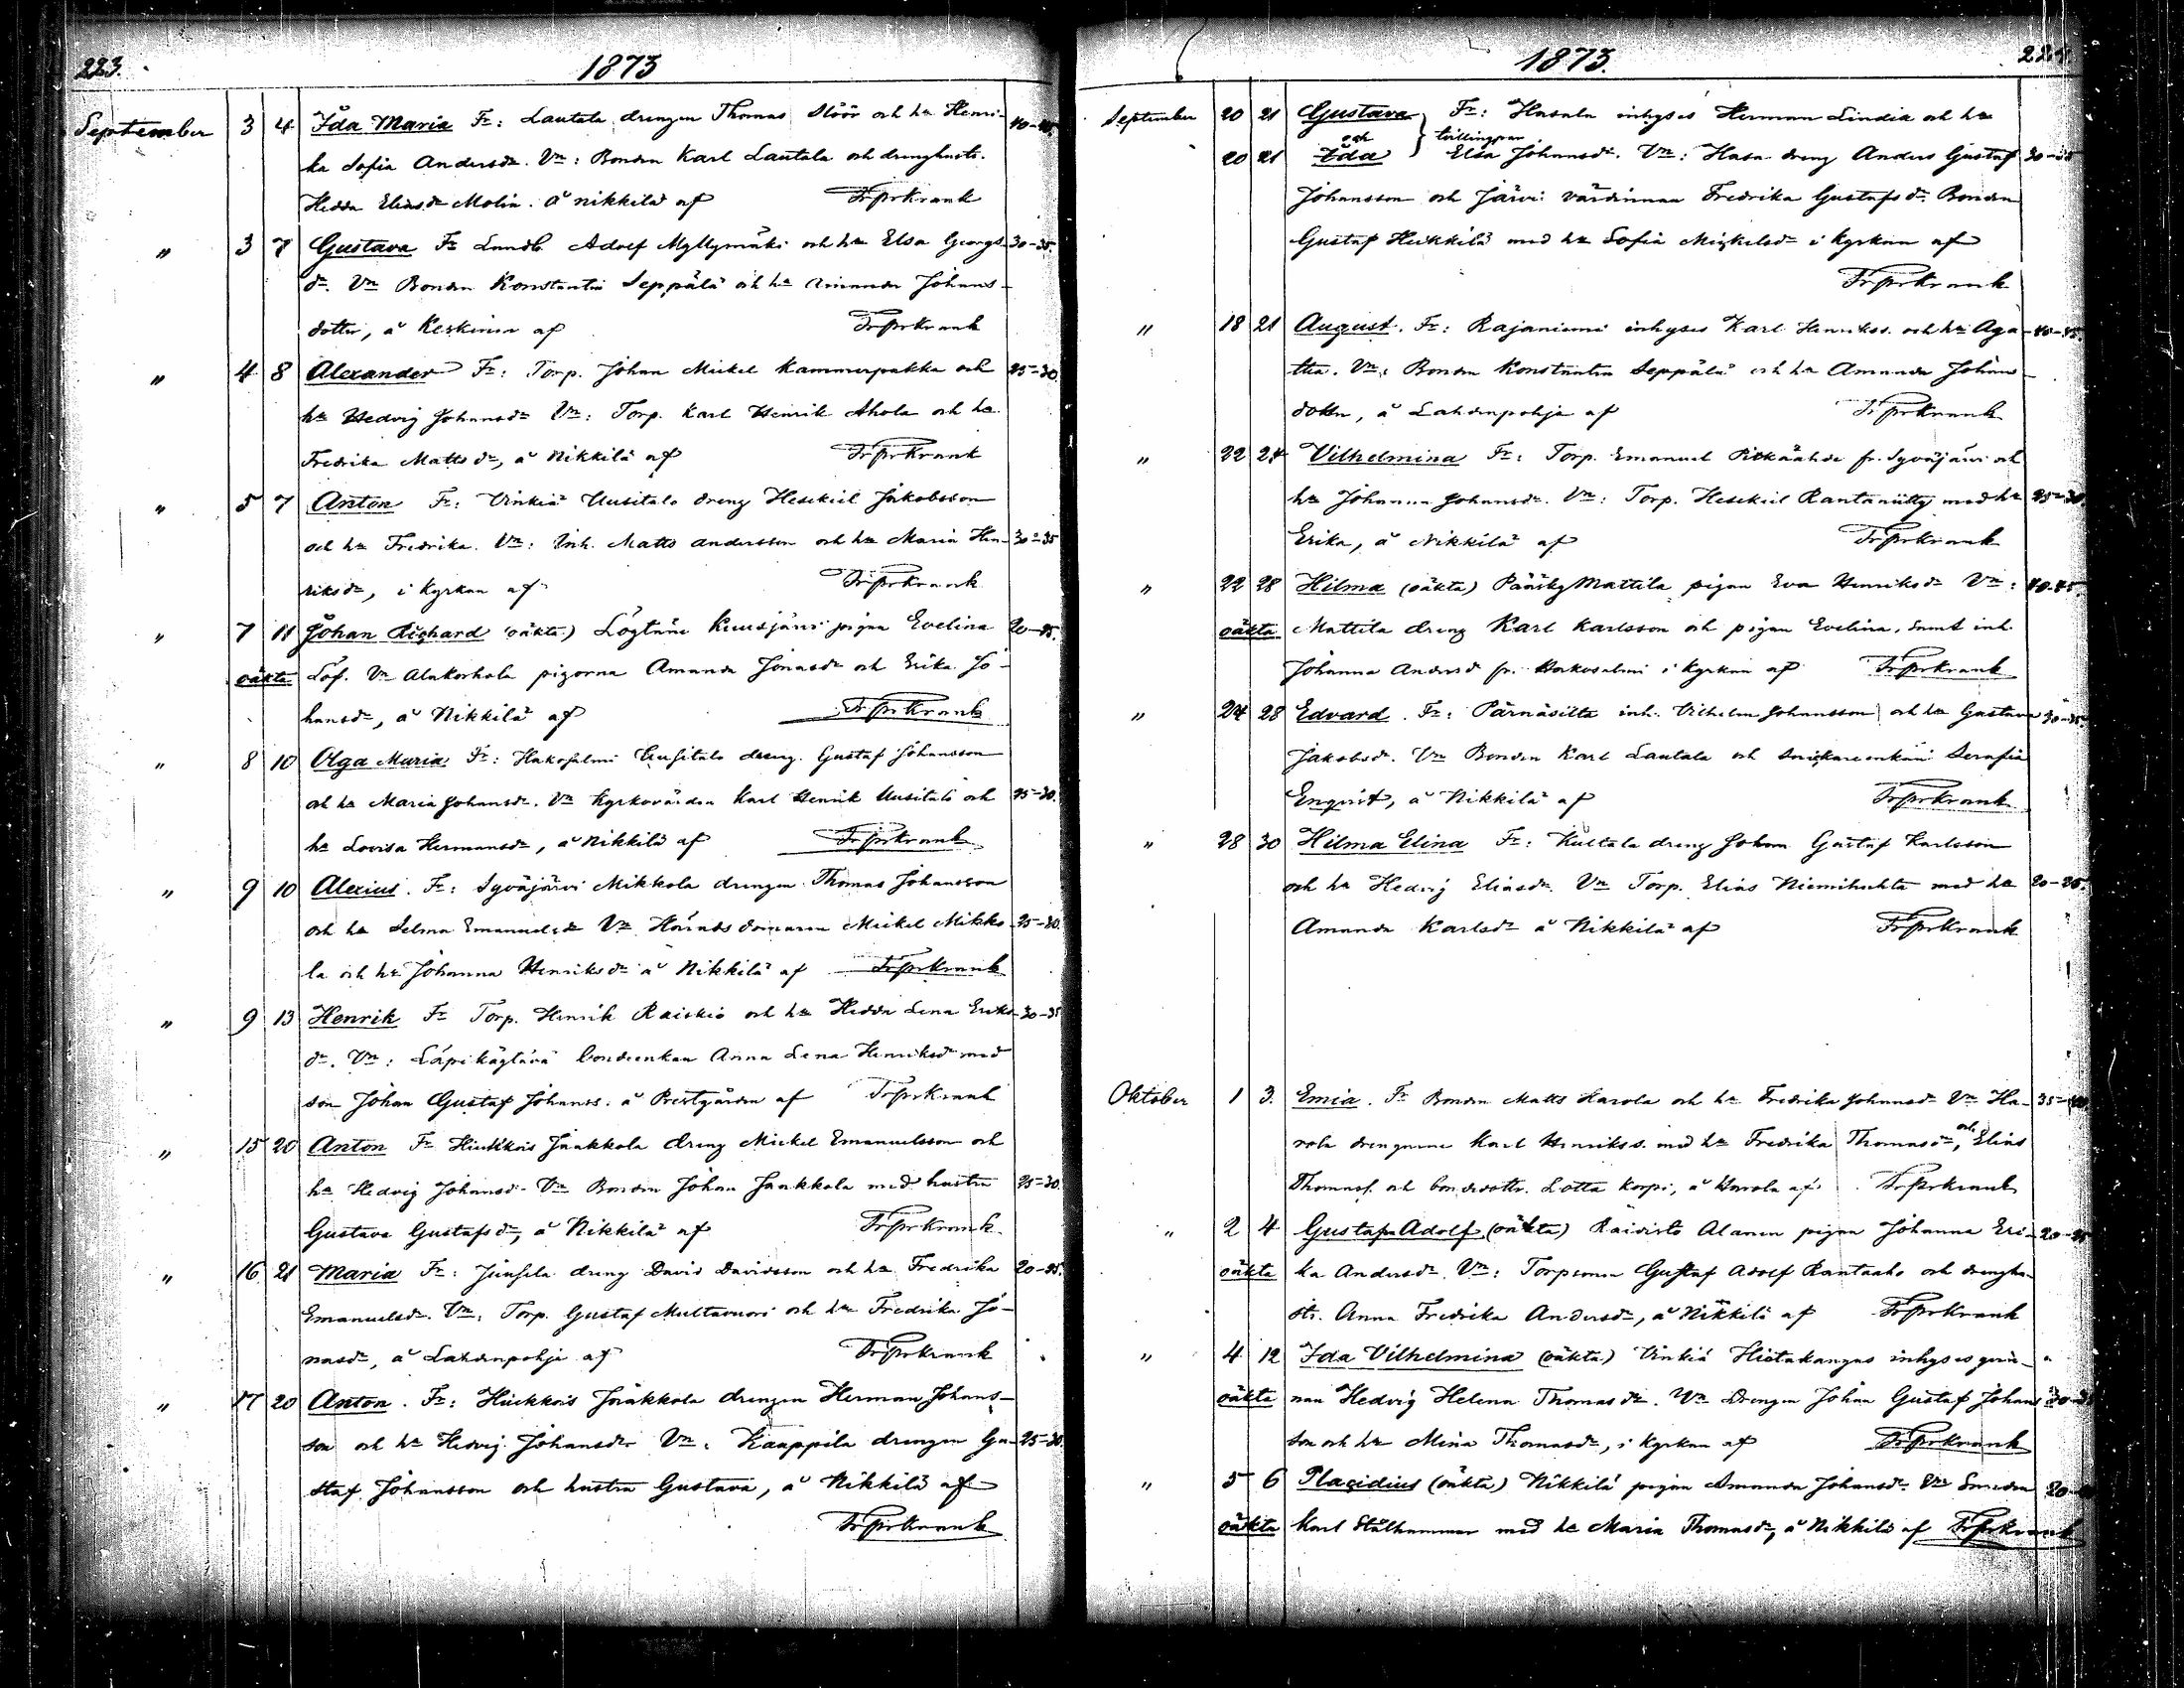 223.
1873
September 3 4 Ida Maria Fr: Lautala drengen Thomas Stöör och hu Henri- 40-45
ka Sofia Andersdr. Vn: Bonden Karl Lautala och drenghustr.
Hedda Eliasdr Molin. å Nikkilä af FrPrKrank
" 3 7 Gustava Fr Landb. Adolf Myllymäki och hu Elsa Georgs- 30-35.
dr. Vn Bonden Konstantin Seppälä och hu Amanda Johans-
dotter, å Keskinen af FrPrKrank
" 4 8 Alexander Fr: Torp. Johan Mickel Kammerpakka och 25-30.
hu Hedvig Johansdr Vn: Torp. Karl Henrik Ahola och hu
Fredrika Mattsdr, å Nikkilä af FrPrKrank
" 5 7 Anton Fr: Vinkiä Uusitalo dreng Hesekiel Jakobsson
och hu Fredrika. Vn: Inh. Matts Andersson och hu Maria Hen- 30-35
riksdr, i Kyrkan af FrPrKrank
" 7 11 Johan Richard (oäkta) Kuusjärvi pigan Evelina 20-25.
oäkta Löf. Vn Alakorhola pigorna Amanda Jonasdr och Erika Jo-
hansdr, å Nikkilä af FrPrKrank
" 8 10 Olga Maria Fr: Hakosalmi Uusitalo dreng. Gustaf Johansson
och hu Maria Johansdr. Vn Kyrkovärden Karl Henrik Uusitalo och 25-30.
hu Lovisa Hermansdr, å Nikkilä af FrPrKrank
" 9 10 Alexius. Fr: Syväjärvi Mikkola drengen Thomas Johansson
och hu Selma Emanuelsdr Vn Häradsdomaren Mickel Mikko- 25-30.
la och hu Johanna Henriksdr å Nikkilä af FrPrKrank
" 9 13 Henrik Fr Torp. Henrik Raiskio och hu Hedda Lena Eriks- 30-35
dr. Vn: Läpikäytävä bondeenkan Anna Lena Henriksdr med
son Johan Gustaf Johanss. å Prestgården af FrPrKrank
" 15 20 Anton Fr Hiukkois Jaakkola dreng Mickel Emanuelsson och
hu Hedvig Johansdr. Vn Bonden Johan Jaakkola med hustru 25-30.
Gustava Gustafsdr, å Nikkilä af FrPrKrank
" 16 21 Maria Fr: Junsela dreng David Davidsson och hu Fredrika 20-25.
Emanuelsdr. Vn: Torp. Gustaf Multavuori och hu Fredrika Jo-
nasdr, å Lahdenpohja af FrPrKrank
" 17 20 Anton. Fr: Hiukkois Jaakkola drengen Herman Johans-
son och hu Hedvig Johansdr Vn: Kauppila drengen Gu- 25-30.
staf Johansson och hustru Gustava, å Nikkilä af
FrPrKrank
1873.
224.
September 20 21 Gustava Fr: Hasala inhyses Herman Lindia och hu
och tvillingpar
20 21 Ida Elsa Johansdr. Vn: Hasa- dreng Anders Gustaf 30-35
Johansson och Järvi värdinnan Fredrika Gustafsdr. Bonden
Gustaf Heikkilä med hu Sofia Mickelsdr i Kyrkan af
FrPrKrank
" 18 21 August. Fr: Rajaniemi inhyses Karl Henrikss. och hu Aga- 40-45.
tha. Vn: Bonden Konstantin Seppälä och hu Amanda Johans-
dotter, å Lahdenpohja af FrPrKrank
" 22 24 Vilhelmina Fr: Torp. Emanuel Pitkäähde fr. Syväjärvi och
hu Johanna Johansdr. Vn: Torp. Hesekiel Rantaniitty med hu 25-30.
Erika, å Nikkilä af FrPrKrank
" 22 28 Hilma (oäkta) Pääsky Mattila pigan Eva Henriksdr Vn: 40-45.
oäkta Mattila dreng Karl Karlsson och pigan Evelina, samt inh.
Johanna Andersd fr. Horkosalmi i Kyrkan af FrPrKrank
" 24 28 Edvard. Fr: Pärnäsilta inh. Vilhelm Johansson och hu Gustava 30-35.
Jakobsdr. Vn Bonden Karl Lautala och Snickareenkan Serafia
Enqvist, å Nikkilä af FrPrKrank
" 28 30 Hilma Elina Fr: Kultala dreng Johan Gustaf Karlsson
och hu Hedvig Eliasdr. Vn Torp. Elias Niemihuhta med hu 20-25.
Amanda Karlsdr å Nikkilä af FrPrKrank
Oktober 1 3. Emia. Fr Bonden Matts Harola och hu Fredrika Johansdr Vn Ha- 35-40.
rola drengarne Karl Henrikss. med hu Fredrika Thomasdr, och Elias
Thomass. och bondedottr. Lotta Korpi, å Harola af FrPrKrank
" 2 4 Gustaf Adolf (oäkta) Räidistö Alanen pigan Johanna Eri- 20-25
oäkta ka Andersdr. Vn: Torpsonen Gustaf Adolf Rantaaho och drenghu-
str. Anna Fredrika Andersdr, å Nikkilä af FrPrKrank
" 4 12 Ida Vilhelmina (oäkta) Vinkiä Hietakangas inhyses qvin-
oäkta nan Hedvig Helena Thomasdr. Vn Drengen Johan Gustaf Johans
son och hu Mina Thomasdr, i Kyrkan af FrPrKrank
" 5 6 Placidius (oäkta) Nikkilä pigan Amanda Johansdr Vn Smeden
oäkta Karl Stålhammar med hu Maria Thomasdr, å Nikkilä af FrPrKrank